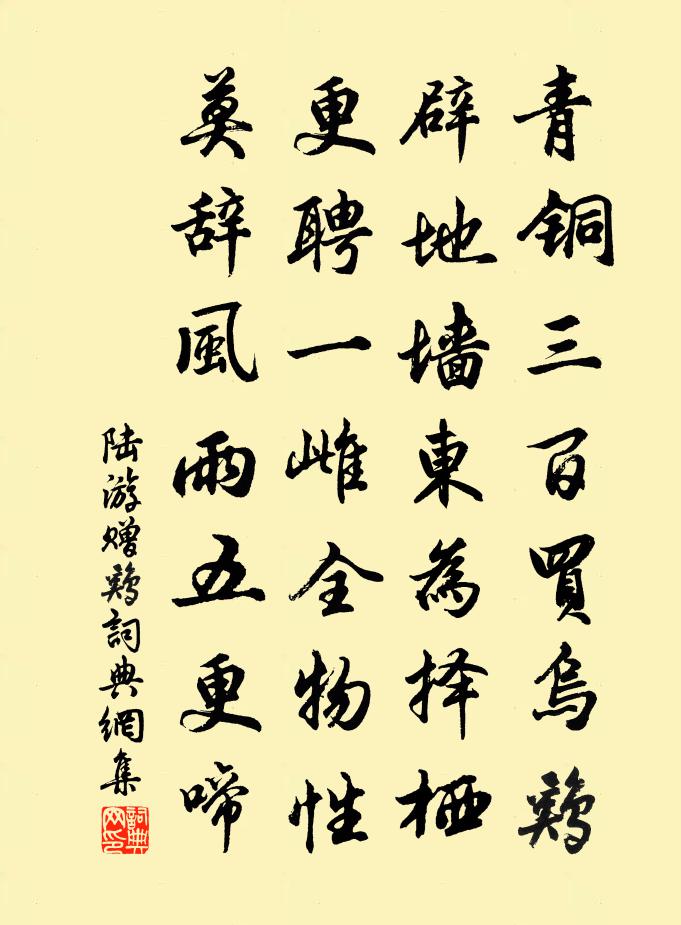 青铜三百買烏鷄
辟地墙東為择栖
更聘一雌全物性
莫辞風雨五更啼
陆游赠鷄詞典網集
詞典网印